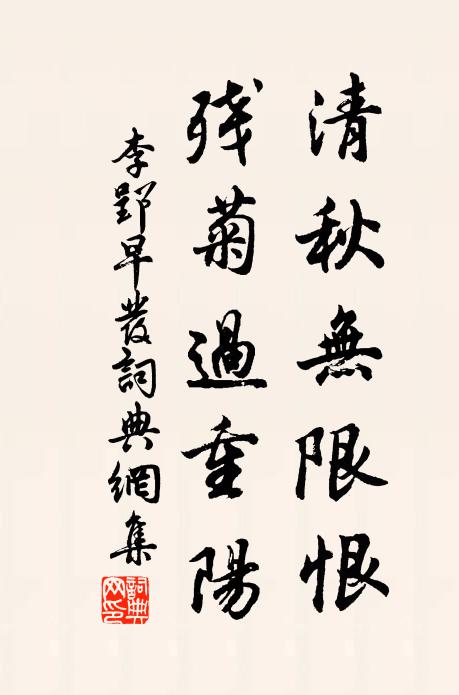 清秋無限恨
残菊過重陽
李郢早發詞典網集
詞典网印